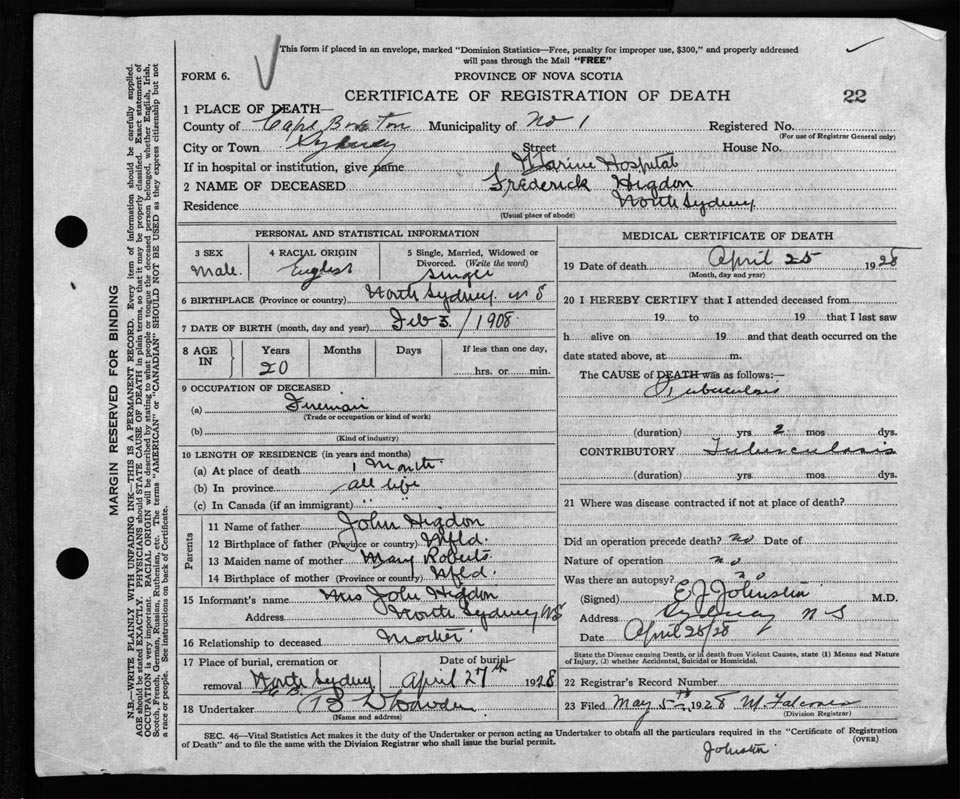 This form if placed in an envelope, marked "Dominion Statistics—Free, penalty for improper use, $300," and properly addressed
will pass through the Mail "FREE"
FORM 6. PROVINCE OF NOVA SCOTIA
CERTIFICATE OF REGISTRATION OF DEATH 22
1 PLACE OF DEATH—
County of Cape Breton Municipality of No 1 Registered No.
(For use of Registrar General only)
City or Town Sydney Street House No.
If in hospital or institution, give name Marine Hospital
2 NAME OF DECEASED Frederick Higdon
Residence North Sydney
(Usual place of abode)
PERSONAL AND STATISTICAL INFORMATION
3 SEX 4 RACIAL ORIGIN 5 Single, Married, Widowed or
Divorced. (Write the word)
Male. English Single
6 BIRTHPLACE (Province or country) North Sydney. N S
7 DATE OF BIRTH (month, day and year) Feb 3. / 1908.
8 AGE IN Years Months Days If less than one day,
20 hrs. or min.
9 OCCUPATION OF DECEASED
(a) Fireman
(Trade or occupation or kind of work)
(b)
(Kind of industry)
10 LENGTH OF RESIDENCE (in years and months)
(a) At place of death 1 Month
(b) In province all life
(c) In Canada (if an immigrant) " "
Parents
11 Name of father John Higdon
12 Birthplace of father (Province or country) Nfld.
13 Maiden name of mother Mary Roberts.
14 Birthplace of mother (Province or country) Nfld.
15 Informant's name Mrs John Higdon
Address North Sydney NS
16 Relationship to deceased Mother
17 Place of burial, cremation or Date of burial
removal North Sydney April 27th 1928
18 Undertaker
(Name and address)
MEDICAL CERTIFICATE OF DEATH
19 Date of death April 25 1928
(Month, day and year)
20 I HEREBY CERTIFY that I attended deceased from
19 to 19 that I last saw
h alive on 19 and that death occurred on the
date stated above, at m.
The CAUSE of DEATH was as follows:—
Tuberculosis
(duration) yrs. 2 mos dys.
CONTRIBUTORY Tuberculosis
(duration) yrs. mos dys.
21 Where was disease contracted if not at place of death?
Did an operation precede death? no Date of
Nature of operation no
Was there an autopsy? no
(Signed) E J Johnstin M.D.
Address Sydney N S
Date April 25/28
State the Disease causing Death, or in death from Violent Causes, state (1) Means and Nature
of Injury, (2) whether Accidental, Suicidal or Homicidal.
22 Registrar's Record Number
23 Filed May 5th 1928
(Division Registrar)
SEC. 46—Vital Statistics Act makes it the duty of the Undertaker or person acting as Undertaker to obtain all the particulars required in the "Certificate of Registration
of Death" and to file the same with the Division Registrar who shall issue the burial permit. (OVER)
Johnstin
MARGIN RESERVED FOR BINDING
N.B.—WRITE PLAINLY WITH UNFADING INK—THIS IS A PERMANENT RECORD. Every item of information should be carefully supplied.
AGE should be stated EXACTLY. PHYSICIANS should STATE CAUSE OF DEATH in plain terms, so that it may be properly classified. Exact statement of
OCCUPATION is very important. RACIAL ORIGIN will be described by stating to what people or tongue the deceased person belonged, whether English, Irish,
Scotch, French, German, Russian, Ruthenian, etc. The terms "AMERICAN" or "CANADIAN" SHOULD NOT BE USED as they express citizenship but not
a race or people. See instructions on back of Certificate.